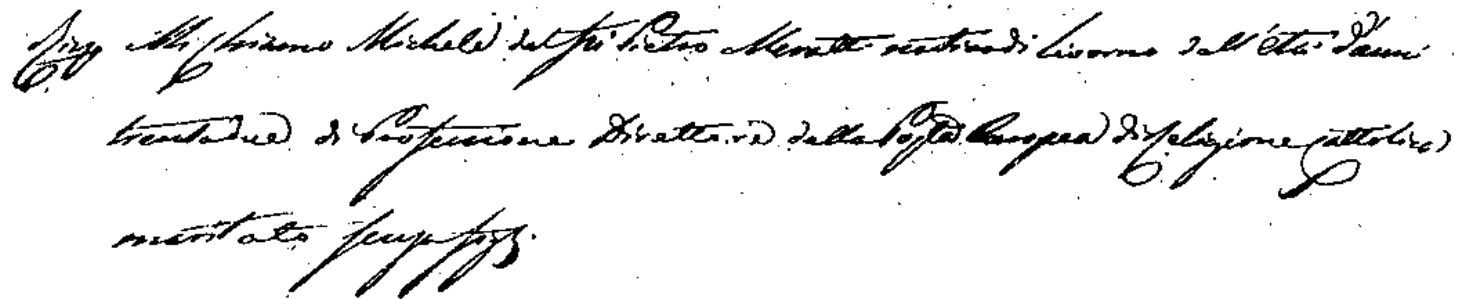 Risp. Mi chiamo Michele del fù Pietro Meratti nativo di Livorno dell'età d'anni
trentadue di Professione Direttore della Posta Europea di religione Cattolica
maritato senza figli